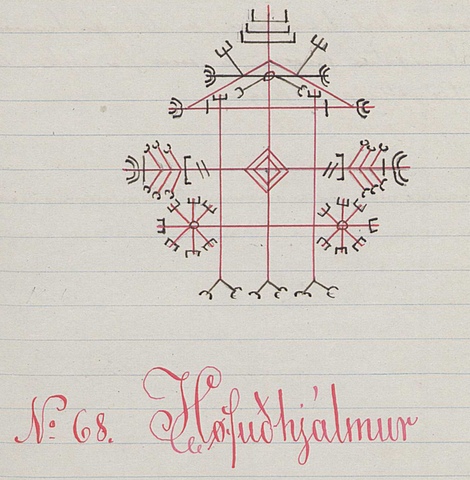 No. 68. Høfuðhjálmur